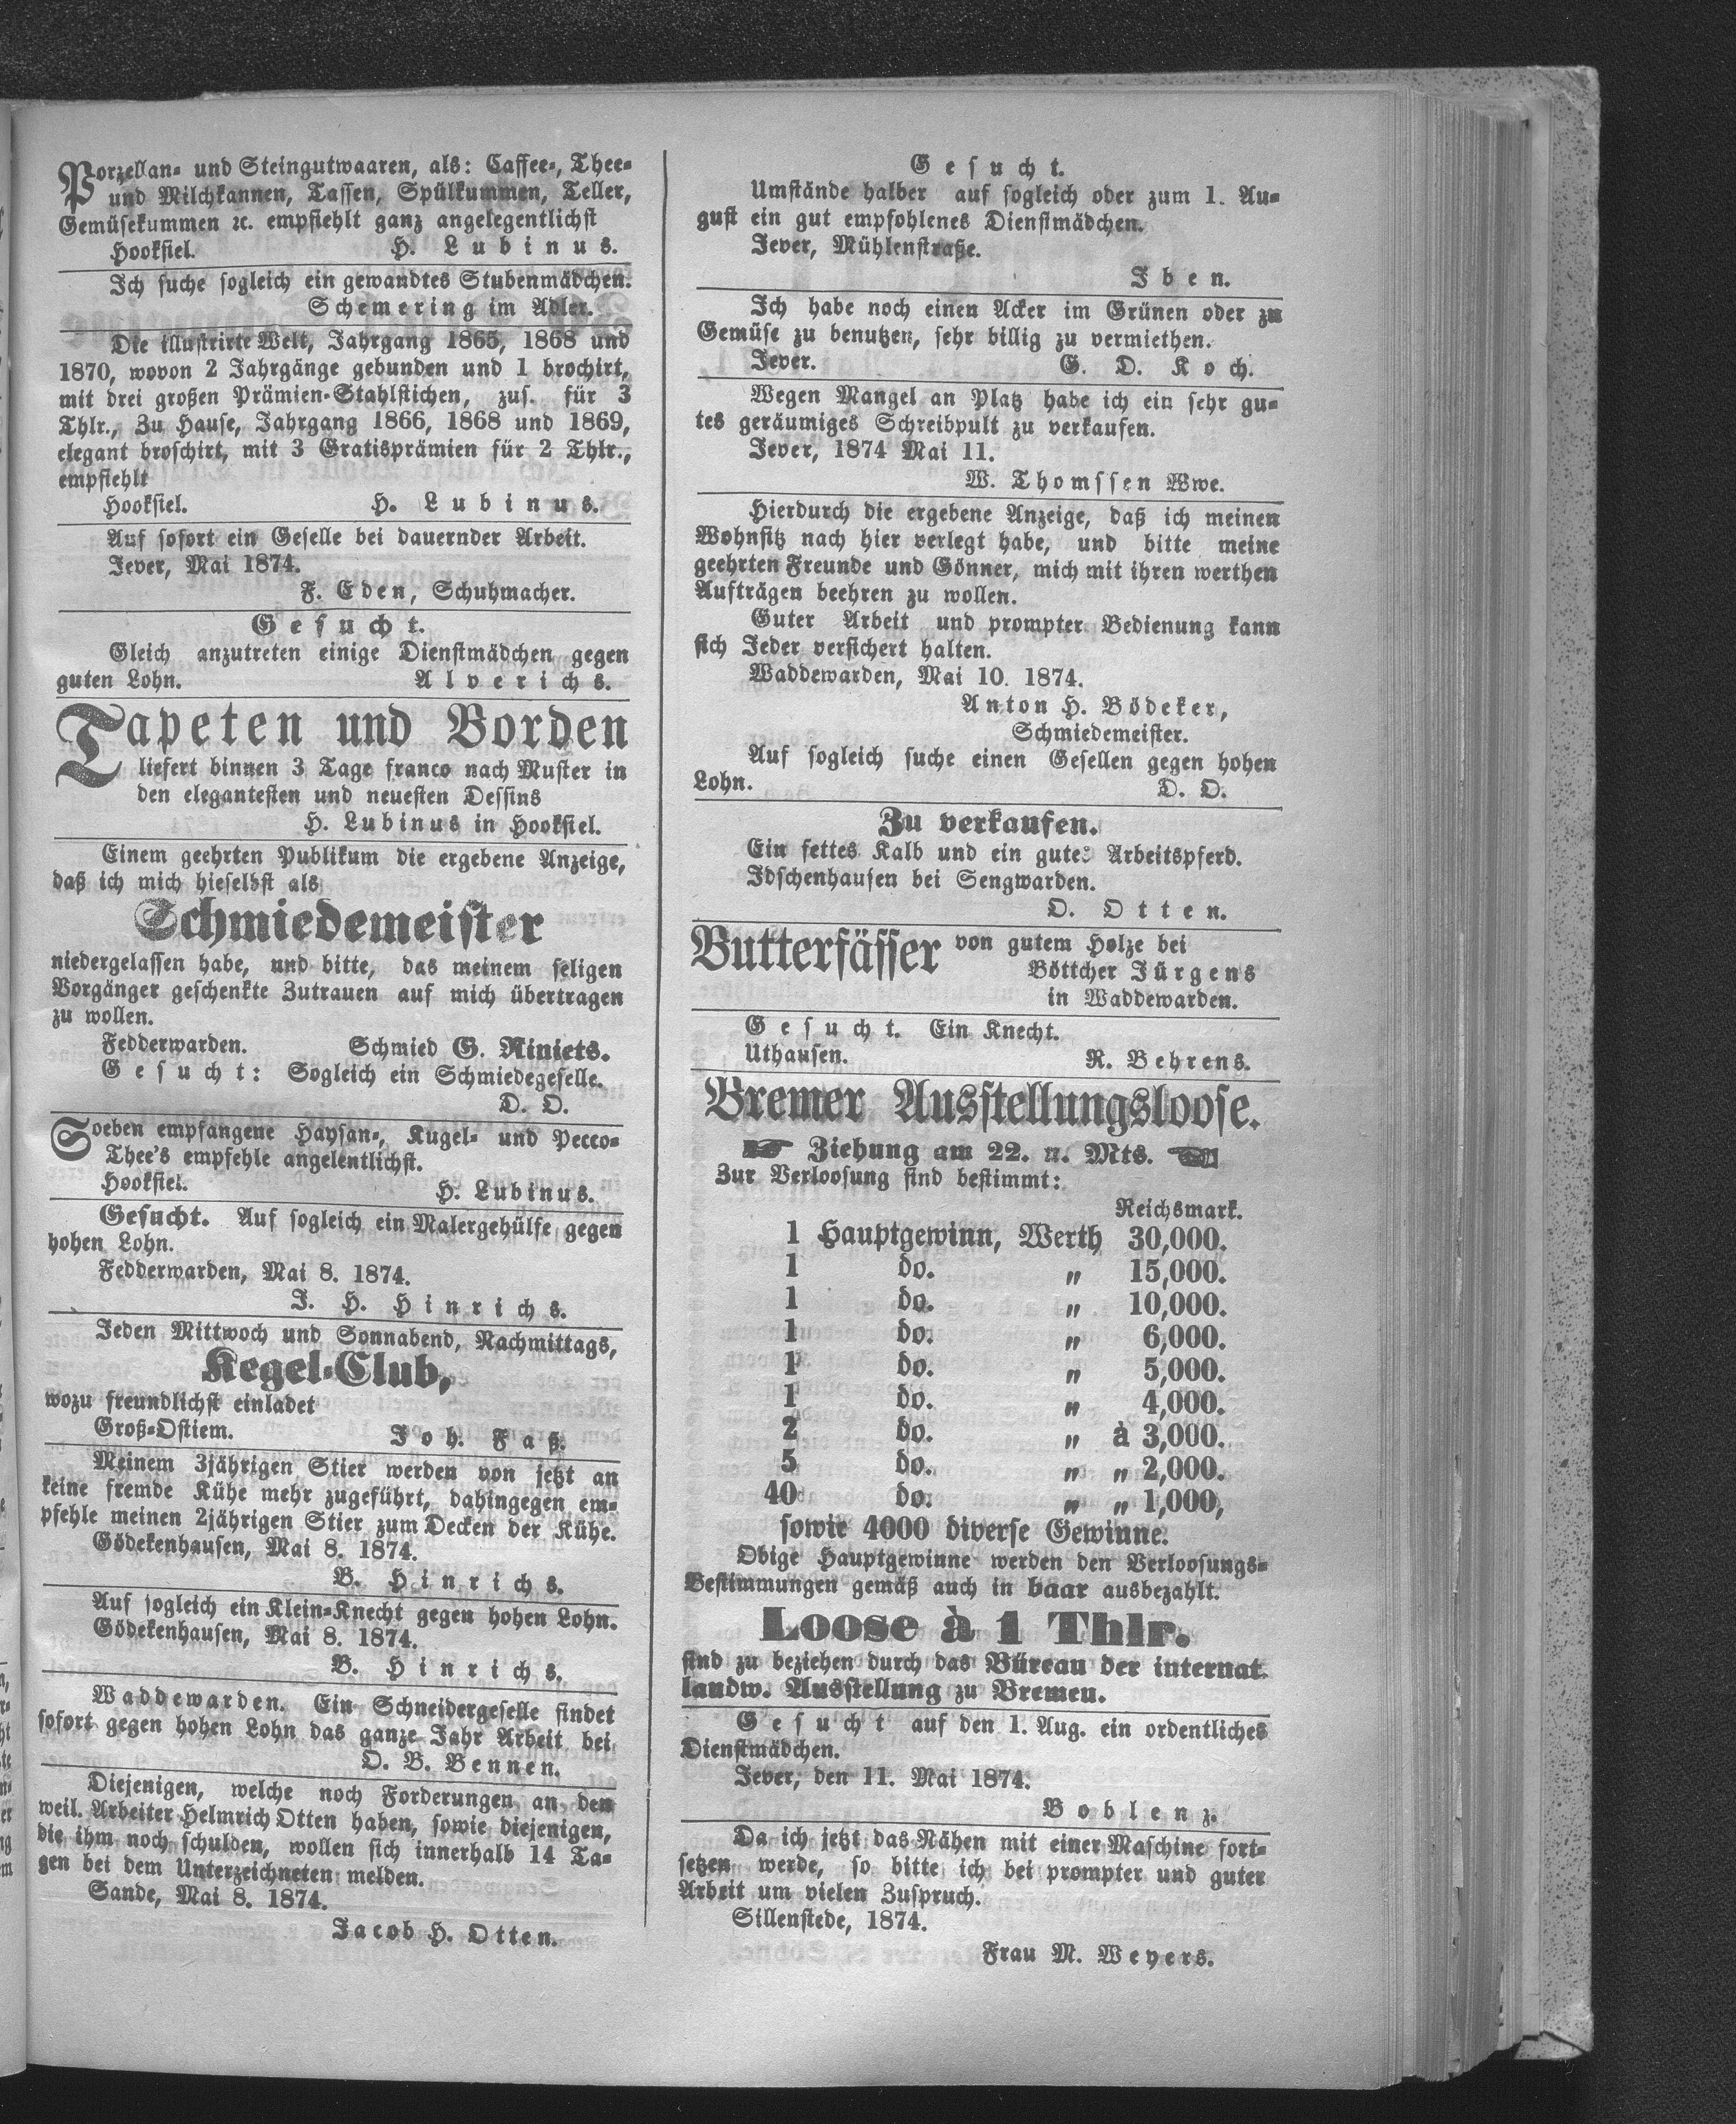 Porzellan- und Steingutwaaren, als: Caffee-, Thee-
und Milchkannen, Tassen, Spülkummen, Teller,
Gemüsekummen ꝛc. empfiehlt ganz angelegentlichst
Hooksiel. H. Lubinus.
Ich suche sogleich ein gewandtes Stubenmädchen.
Schemering im Adler.
Die illustrirte Welt, Jahrgang 1865, 1868 und
1870, wovon 2 Jahrgänge gebunden und 1 brochirt,
mit drei großen Prämien-Stahlstichen, zus. für 3
Thlr., Zu Hause, Jahrgang 1866, 1868 und 1869,
elegant broschirt, mit 3 Gratisprämien für 2 Thlr.,
empfiehlt
Hooksiel. H. Lubinus.
Auf sofort ein Geselle bei dauernder Arbeit.
Jever, Mai 1874.
F. Eden, Schuhmacher.
Gesucht.
Gleich anzutreten einige Dienstmädchen gegen
guten Lohn. Alverichs.
Tapeten und Borden
liefert binnen 3 Tage franco nach Muster in
den elegantesten und neuesten Dessins
H. Lubinus in Hooksiel.
Einem geehrten Publikum die ergebene Anzeige,
daß ich mich hieselbst als
Schmiedemeister
niedergelassen habe, und bitte, das meinem seligen
Vorgänger geschenkte Zutrauen auf mich übertragen
zu wollen.
Fedderwarden. Schmied G. Riniets.
Gesucht: Sogleich ein Schmiedegeselle.
D. O.
Soeben empfangene Haysan-, Kugel- und Pecco-
Thee's empfehle angelentlichst.
Hooksiel. H. Lubinus.
Gesucht. Auf sogleich ein Malergehülfe gegen
hohen Lohn.
Fedderwarden, Mai 8. 1874.
J. H. Hinrichs.
Jeden Mittwoch und Sonnabend, Nachmittags,
Kegel-Club,
wozu freundlichst einladet
Groß-Ostiem. Joh. Faß.
Meinem 3jährigen Stier werden von jetzt an
keine fremde Kühe mehr zugeführt, dahingegen em-
pfehle meinen 2jährigen Stier zum Decken der Kühe.
Gödekenhausen, Mai 8. 1874.
B. Hinrichs.
Auf sogleich ein Klein-Knecht gegen hohen Lohn.
Gödekenhausen, Mai 8. 1874.
B. Hinrichs.
Waddewarden. Ein Schneidergeselle findet
sofort gegen hohen Lohn das ganze Jahr Arbeit bei
O. B. Bennen.
Diejenigen, welche noch Forderungen an den
weil. Arbeiter Helmrich Otten haben, sowie diejenigen,
die ihm noch schulden, wollen sich innerhalb 14 Ta-
gen bei dem Unterzeichneten melden.
Sande, Mai 8. 1874.
Jacob H. Otten.
Gesucht.
Umstände halber auf sogleich oder zum 1. Au-
gust ein gut empfohlenes Dienstmädchen.
Jever, Mühlenstraße.
Iben.
Ich habe noch einen Acker im Grünen oder zu
Gemüse zu benutzen, sehr billig zu vermiethen.
Jever. G. D. Koch.
Wegen Mangel an Platz habe ich ein sehr gu-
tes geräumiges Schreibpult zu verkaufen.
Jever, 1874 Mai 11.
W. Thomssen Wwe.
Hierdurch die ergebene Anzeige, daß ich meinen
Wohnsitz nach hier verlegt habe, und bitte meine
geehrten Freunde und Gönner, mich mit ihren werthen
Aufträgen beehren zu wollen.
Guter Arbeit und prompter Bedienung kann
sich Jeder versichert halten.
Waddewarden, Mai 10. 1874.
Anton H. Bödeker,
Schmiedemeister.
Auf sogleich suche einen Gesellen gegen hohen
Lohn. D. O.
Zu verkaufen.
Ein fettes Kalb und ein gutes Arbeitspferd.
Idschenhausen bei Sengwarden.
O. Otten.
Butterfässer von gutem Holze bei
Böttcher Jürgens
in Waddewarden.
Gesucht. Ein Knecht.
Uthausen. R. Behrens.
Bremer Ausstellungsloose.
☛ Ziehung am 22. n. Mts. ☚
Zur Verloosung sind bestimmt:
Reichsmark.
1 Hauptgewinn, Werth 30,000.
1 do. „ 15,000.
1 do. „ 10,000.
1 do. „ 6,000.
1 do. „ 5,000.
1 do. „ 4,000.
2 do. „ à 3,000.
5 do. „ „ 2,000.
40 do. „ „ 1,000,
sowie 4000 diverse Gewinne.
Obige Hauptgewinne werden den Verloosungs-
Bestimmungen gemäß auch in baar ausbezahlt.
Loose à 1 Thlr.
sind zu beziehen durch das Büreau der internat.
landw. Ausstellung zu Bremen.
Gesucht auf den 1. Aug. ein ordentliches
Dienstmädchen.
Jever, den 11. Mai 1874.
Boblenz.
Da ich jetzt das Nähen mit einer Maschine fort-
setzen werde, so bitte ich bei prompter und guter
Arbeit um vielen Zuspruch.
Sillenstede, 1874.
Frau M. Weyers.